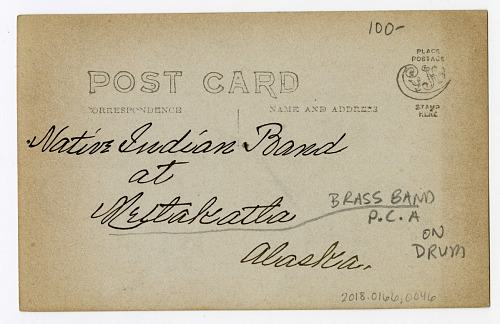 100-
PLACE
POSTAGE
STAMP
HERE
POST CARD
CORRESPONDENCE
NAME AND ADDRESS
Native Indian Band
at
Metlakatla
Alaska.
BRASS BAND
P.C.A
ON
DRUM
2018.0166.0046